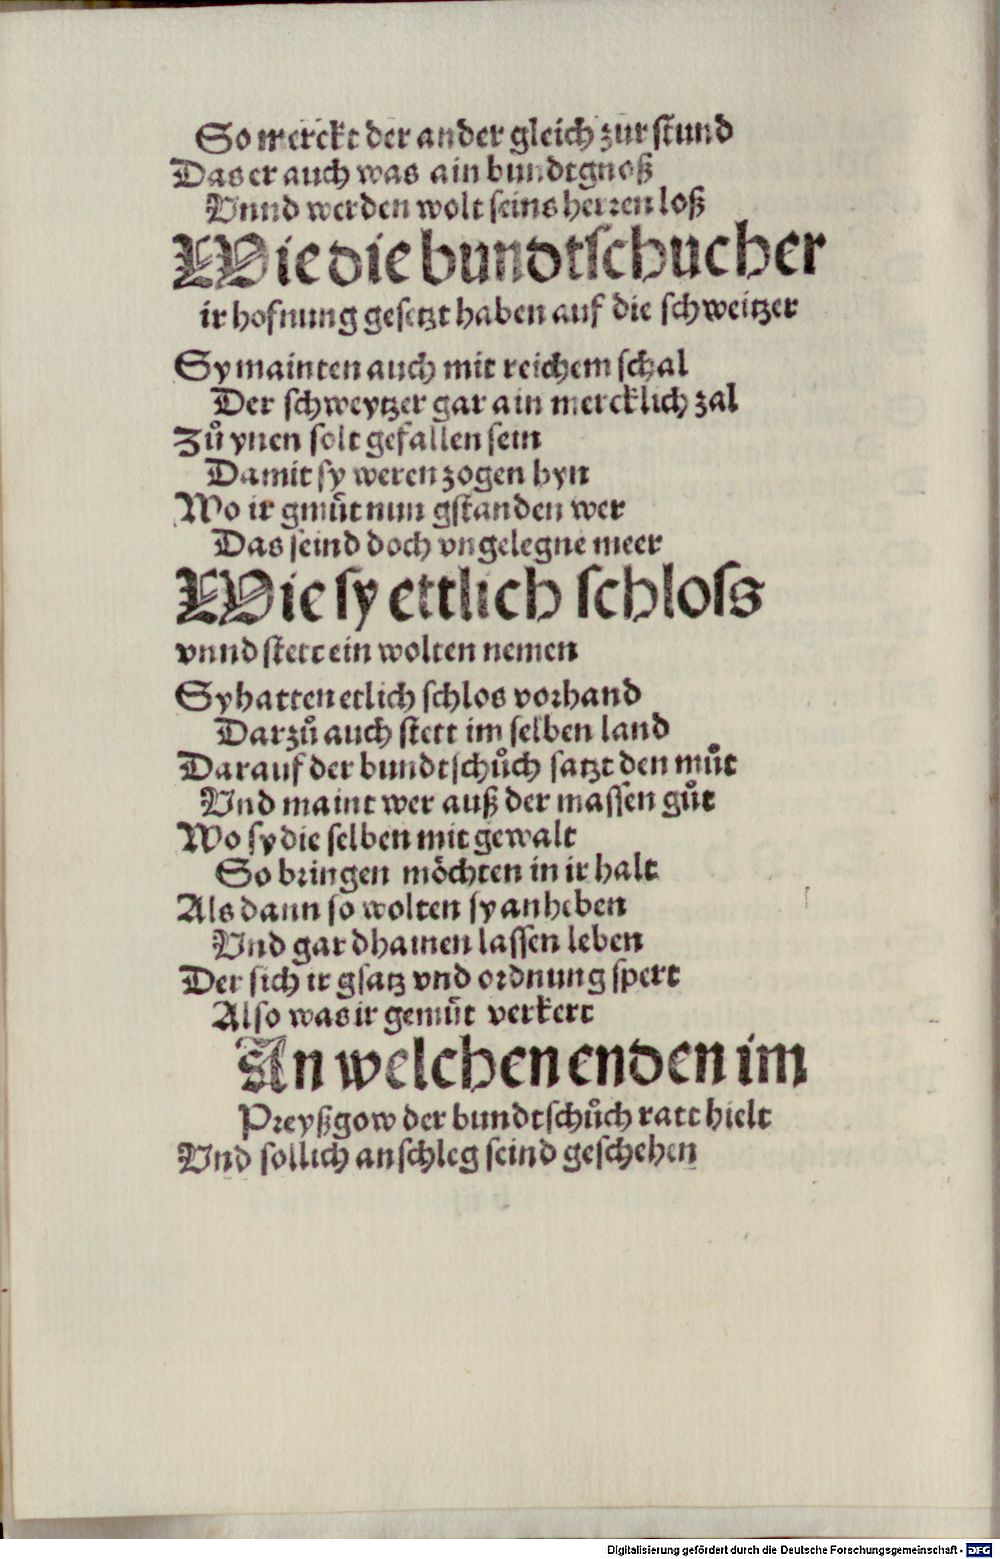 So merckt der ander gleich zur stund
Das er auch was ain bundtgnoß
Vnnd werden wolt seins herren loß
Wie die bundtschucher
ir hofnung gesetzt haben auf die schweitzer
Sy mainten auch mit reichem schal
Der schweytzer gar ain mercklich zal
Zů ynen solt gefallen sein
Damit sy weren zogen hyn
Wo ir gmüt nun gstanden wer
Das seind doch vngelegne meer
Wie sy ettlich schloss
vnnd stett ein wolten nemen
Sy hatten etlich schlos vorhand
Darzů auch stett im selben land
Darauf der bundtschůch satzt den můt
Vnd maint wer auß der massen gůt
Wo sy die selben mit gewalt
So bringen möchten in ir halt
Als dann so wolten sy anheben
Vnd gar dhainen lassen leben
Der sich ir gsatz vnd ordnung spert
Also was ir gemüt verkert
An welchen enden im
Preyßgow der bundtschůch ratt hielt
Vnd sollich anschleg seind geschehen
Digitalisierung gefördert durch die Deutsche Forschungsgemeinschaft - DFG